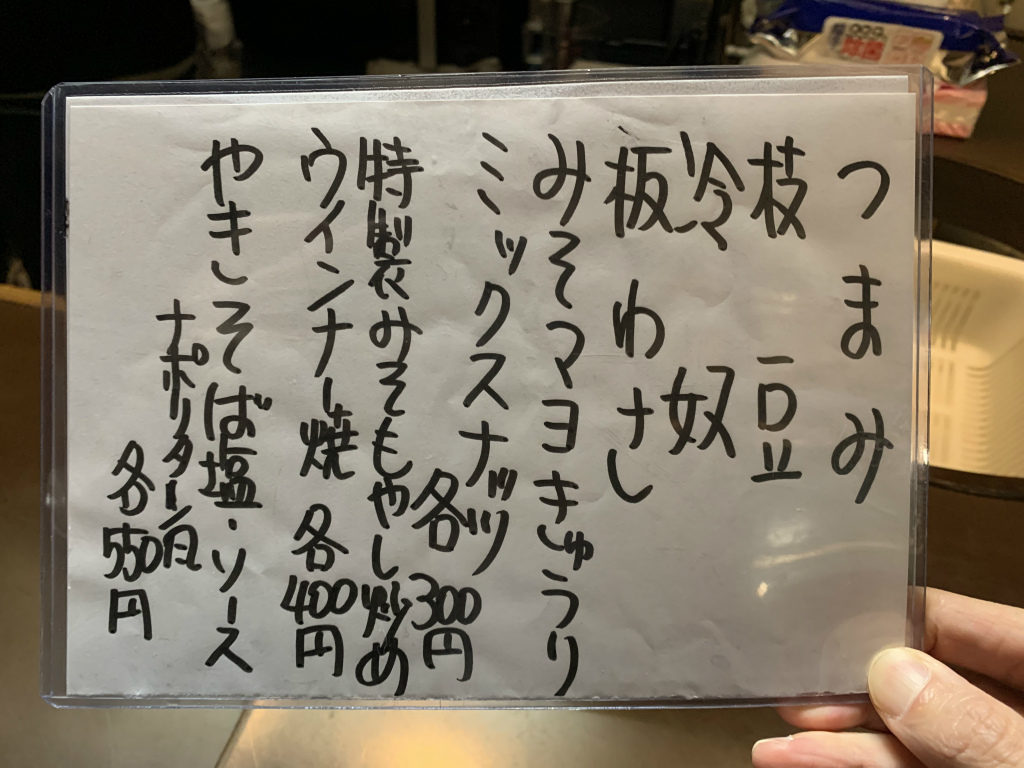 つまみ
枝豆
冷奴
板わさし
みそマヨきゅうり
ミックスナッツ
各300円
特製みそもやし炒め
ウインナー焼
各400円
やきそば塩・ソース
ナポリタン風
各550円
除菌